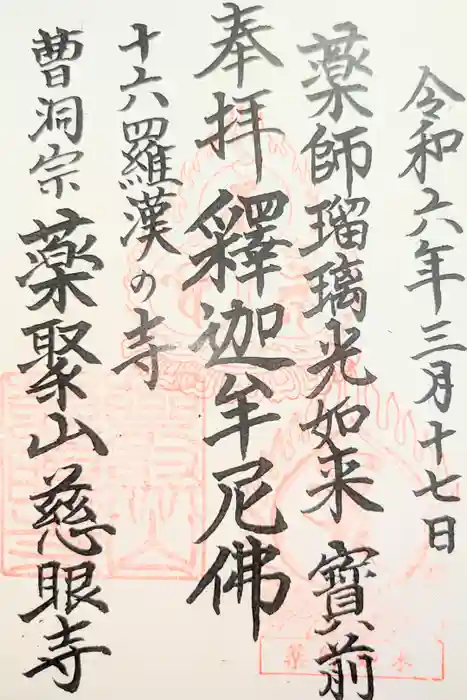 令和六年三月十七日
薬師瑠璃光如来 寳前
奉拝 釋迦牟尼佛
十六羅漢の寺
曹洞宗 薬聚山慈眼寺